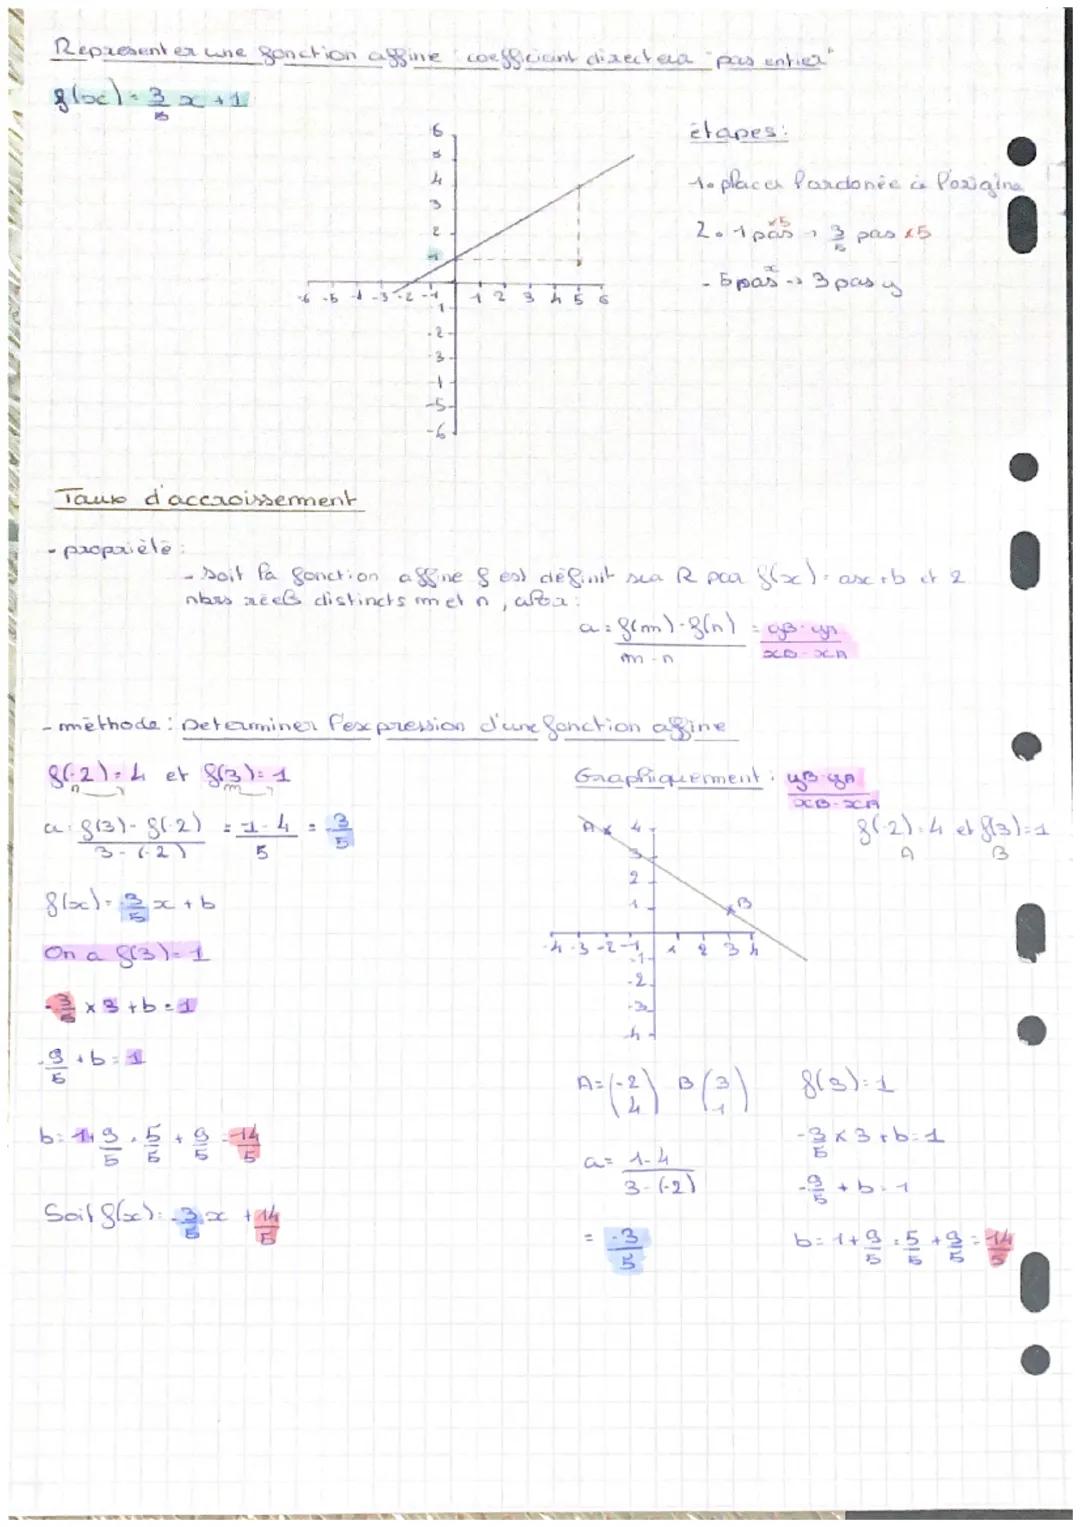 Représenter une fonction affine : coefficiant directeur "pas entier"
f(x) = 3/5 x + 1
étapes :
1. placer l'ordonée à l'origine
2. 1 pas x5 → 3/5 pas x5
- 5 pas x → 3 pas y
6
5
4
3
2
1
-6 -5 -4 -3 -2 -1 1 2 3 4 5 6
-1
-2
-3
-4
-5
-6
Taux d'accroissement
- propriété :
- Soit la fonction affine f est définit sur R par f(x) = ax + b et 2
nbrs réels distincts m et n, alors :
a = f(m) - f(n) / m - n = yB - yA / xB - xA
- méthode : Determiner l'expression d'une fonction affine
f(-2) = 4 et f(3) = 1
n m
a = f(3) - f(-2) / 3 - (-2) = 1 - 4 / 5 = -3/5
f(x) = -3/5 x + b
On a f(3) = 1
-3/5 x 3 + b = 1
-9/5 + b = 1
b = 1 + 9/5 = 5/5 + 9/5 = 14/5
Soit f(x) = -3/5 x + 14/5
Graphiquement : yB - yA / xB - xA
f(-2) = 4 et f(3) = 1
A B
A
4
3
2
1
B
-4 -3 -2 -1 1 2 3 4
-1
-2
-3
-4
A = (-2 4) B (3 1)
a = 1 - 4 / 3 - (-2)
= -3/5
f(3) = 1
-3/5 x 3 + b = 1
-9/5 + b = 1
b = 1 + 9/5 = 5/5 + 9/5 = 14/5